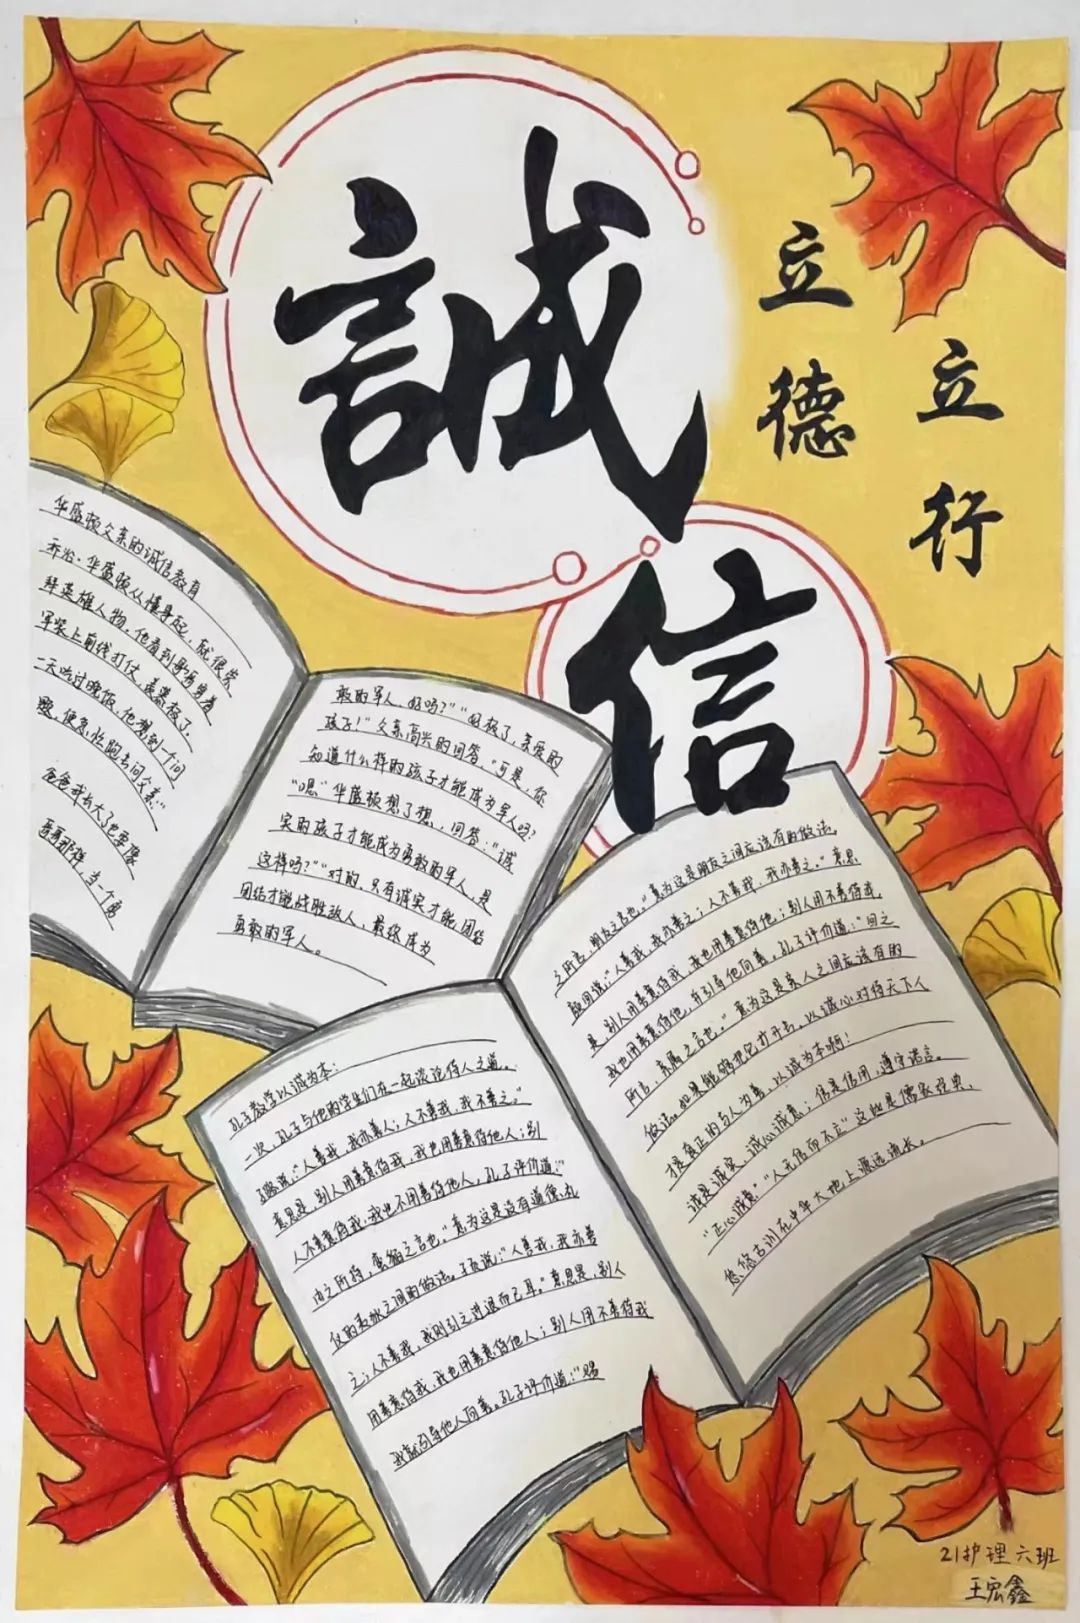 誠
信
立德
立行
华盛顿父亲的诚信教育
乔治·华盛顿从懂事起，就很崇
拜英雄人物，他看到哥哥穿着
军装上前线打仗，羡慕极了。
二天吃过晚饭，他想到一个问
题，便急忙跑去问父亲："
爸爸我长大了也要像
哥哥那样，当一个勇
敢的军人，好吗？""好极了，亲爱的
孩子！"父亲高兴的回答。"可是，你
知道什么样的孩子才能成为军人吗？
"嗯"华盛顿想了想，回答："诚
实的孩子才能成为勇敢的军人，是
这样吗？""对的，只有诚实才能团结
团结才能战胜敌人，最终成为
勇敢的军人。
孔子教学以诚为本：
一次，孔子与他的学生们在一起谈论待人之道。
子路说："人善我，我亦善人；人不善我，我不善之。"
意思是，别人用善意待我，我也用善意待他人；别
人不善意待我，我也不用善待他人，孔子评价道："
由之所持，蛮貊之言也。"意为这是没有道德、礼
仪的夷狄之间的做法。子贡说："人善我，我亦善
之；人不善我，我则引之进退而已耳。"意思是，别人
用善意待我，我也用善意待他人；别人用不善待我
我就引导他人向善。孔子评价道："赐
之所言，朋友之言也。"意为这是朋友之间应该有的做法。
颜回说："人善我，我亦善之；人不善我，我亦善之。"意思
是，别人用善意待我，我也用善意待他；别人用不善待我，
我也用善意待他，并引导他向善。孔子评价道："回之
所言，亲属之言也。"意为这是亲人之间应该有的
做法。如果能够把它打开去，以诚心对待天下人
才是真正的与人为善，以诚为本啊！
诚是诚实，诚心诚意；信是信用，遵守诺言。
"正心诚意""人无信而不立"这些是儒家经典，
悠悠古训在中华大地上源远流长。
21护理六班
王宏鑫